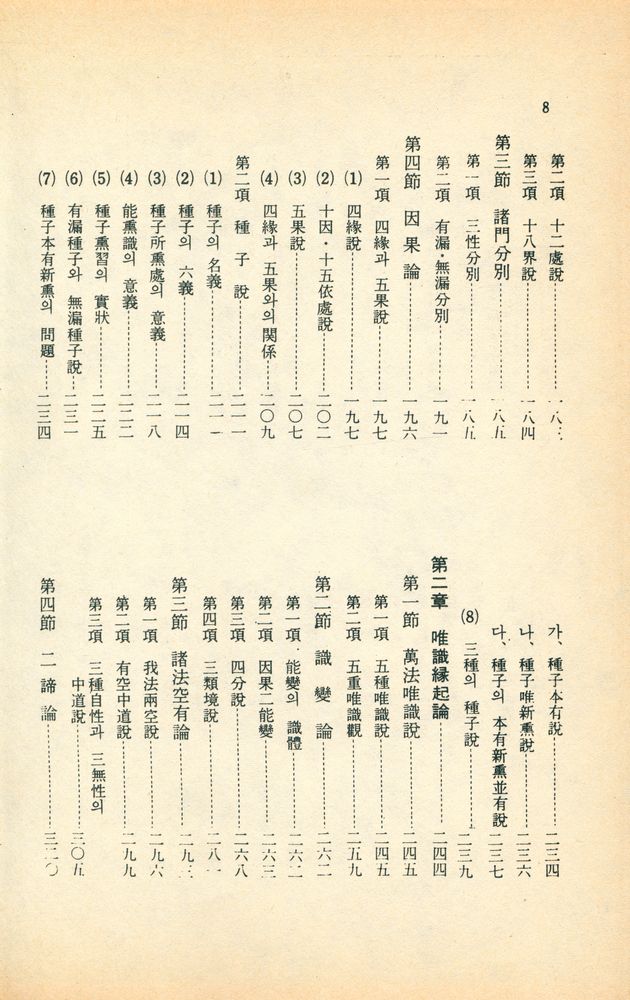 8
第二項 十二處說…………一八
第三項 十八界說…………一八四
第三節 諸門分別…………一八五
第一項 三性分別…………一八五
第二項 有漏·無漏分別…………一九一
第四節 因果論…………一九六
第一項 四緣과 五果說…………一九七
(1) 四緣說…………一九七
(2) 十因·十五依處說…………二〇二
(3) 五果說…………二〇七
(4) 四緣과 五果와의 關係…………二〇九
第二項 種子說…………二一一
(1) 種子의 名義…………二一一
(2) 種子의 六義…………二一四
(3) 種子所熏處의 意義…………二一八
(4) 能熏識의 意義…………二二二
(5) 種子熏習의 實狀…………二二五
(6) 有漏種子와 無漏種子說…………二三一
(7) 種子本有新熏의 問題…………二三四
가、種子本有說…………二三四
나、種子唯新熏說…………二三六
다、種子의 本有新熏並有說…………二三七
(8) 三種의 種子說…………二三九
第二章 唯識緣起論…………二四四
第一節 萬法唯識說…………二四五
第一項 五種唯識說…………二四五
第二項 五重唯識觀…………二五九
第二節 識變論…………二六二
第一項·能變의 識體…………二六二
第二項 因果二能變…………二六三
第三項 四分說…………二六八
第四項 三類境說…………二八一
第三節 諸法空有論…………二九三
第一項 我法兩空說…………二九六
第二項 有空中道說…………二九九
第三項 三種自性과 三無性의
中道說…………三〇五
第四節 二諦論…………三二〇